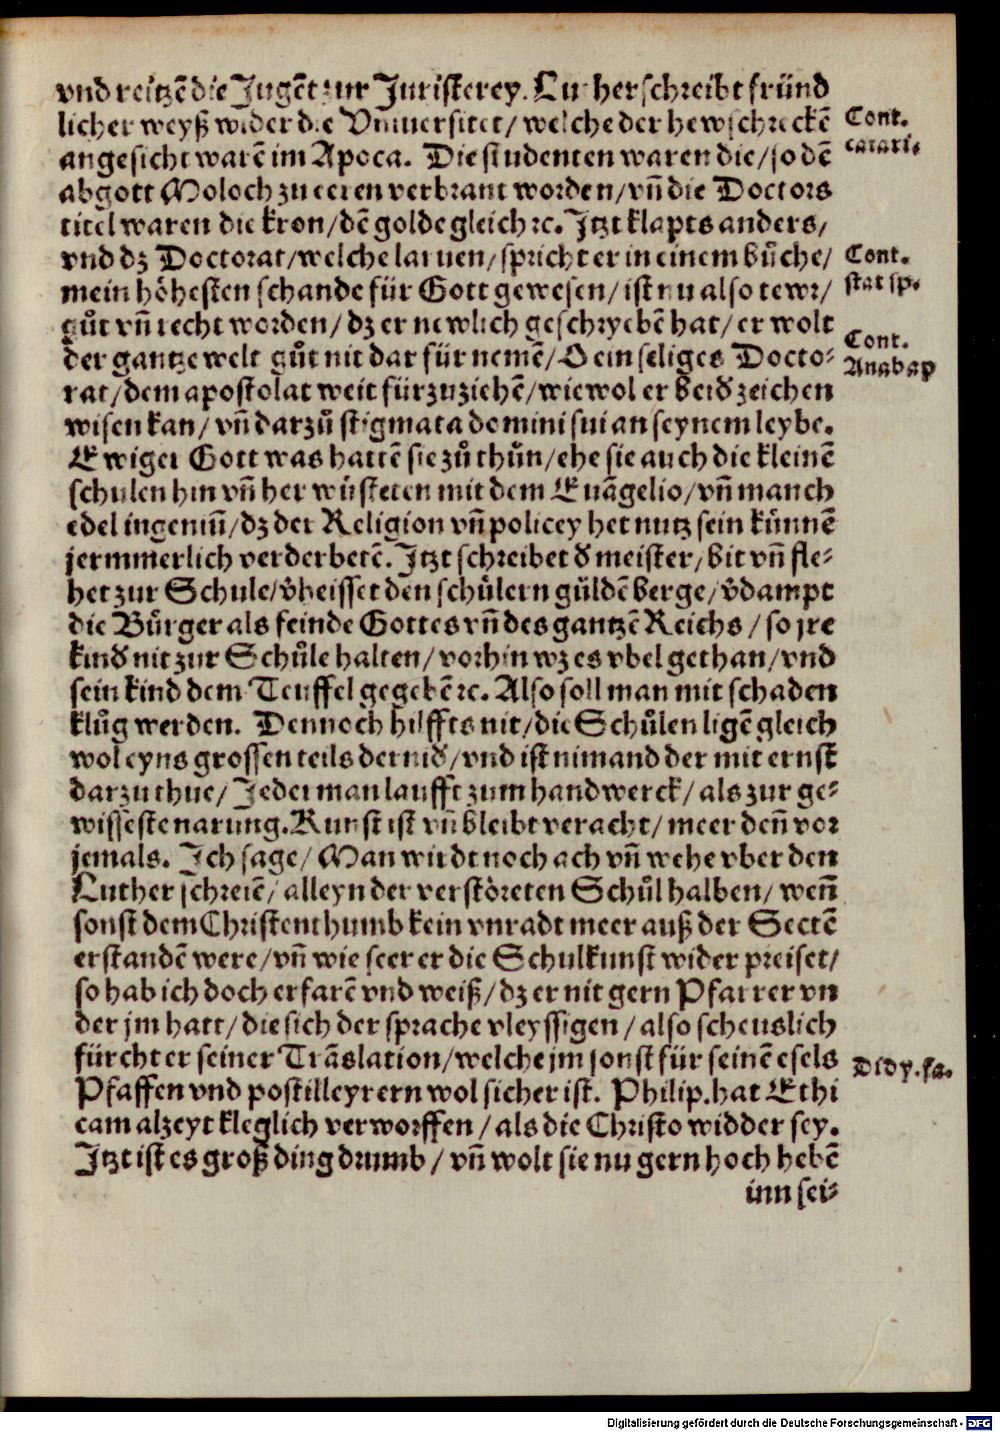 vnd reitzē die Jugēt zur Juristerey. Luther schreibt fründ
licher weyß wider die Vniuersitet/ welche der hewschreckē
angesicht warē im Apoca. Die studenten waren die/ so dē
abgott Moloch zu eeren verbrant worden/ vñ die Doctors
titel waren die kron/ dē golde gleich ꝛc. Jtzt klapts anders/
vnd dz Doctorat/ welche laruen/ spricht er in einem bůche/
mein höhesten schande für Gott gewesen/ ist nu also tewr/
gůt vñ recht worden/ dz er newlich geschryebē hat/ er wolt
der gantze welt gůt nit dar für nemē/ O ein seliges Docto⸗
rat/ dem apostolat weit fürzuziehē/ wiewol er beiď zeichen
wisen kan/ vñ darzů stigmata domini sui an seynem leybe.
Ewiger Gott was hattē sie zůthůn/ ehe sie auch die kleinē
schulen hin vñ her wůsteten mit dem Euāgelio/ vñ manch
edel ingeniū/ dz der Religion vñ policey het nutz sein künnē
jermmerlich verderbetē. Jtzt schreibet ď meister/ bit vñ fle⸗
het zur Schule/ v̉heisset den schůlern güldē berge/ v̉dampt
die Bürger als feinde Gottes vñ des gantzē Reichs/ so jre
kinď nit zur Schůle halten/ vorhin wz es vbel gethan/ vnd
sein kind dem Teuffel gegebē ꝛc. Also soll man mit schaden
klůg werden. Dennoch hilffts nit/ die Schůlen ligē gleich
wol eyns grossen teils derniď/ vnd ist nimand der mit ernst
darzu thue/ Jederman laufft zum handwerck/ als zur ge⸗
wissesten narung. Kunst ist vñ bleibt veracht/ meer deñ vor
jemals. Jch sage/ Man wirdt noch ach vñ wehe vber den
Luther schreiē/ alleyn der verstöreten Schůl halben/ weñ
sonst dem Christenthumb kein vnradt meer auß der Sectē
erstandē were/ vñ wie seer er die Schulkunst wider preiset/
so hab ich doch erfarē vnd weiß/ dz er nit gern Pfarrer vn
der jm hatt/ die sich der sprache vleyssigen/ also scheuslich
fürcht er seiner Trāslation/ welche jm sonst für seinē esels
Pfaffen vnd postilleyrern wol sicher ist. Philip. hat Ethi
cam alzeyt kleglich verworffen/ als die Christo widder sey.
Jtzt ist es groß ding drumb/ vñ wolt sie nu gern hoch hebē
inn sei⸗
Cont.
catari.
Cont.
stat sp.
Cont.
Anabap
Didy. fa.
Digitalisierung gefördert durch die Deutsche Forschungsgemeinschaft - DFG